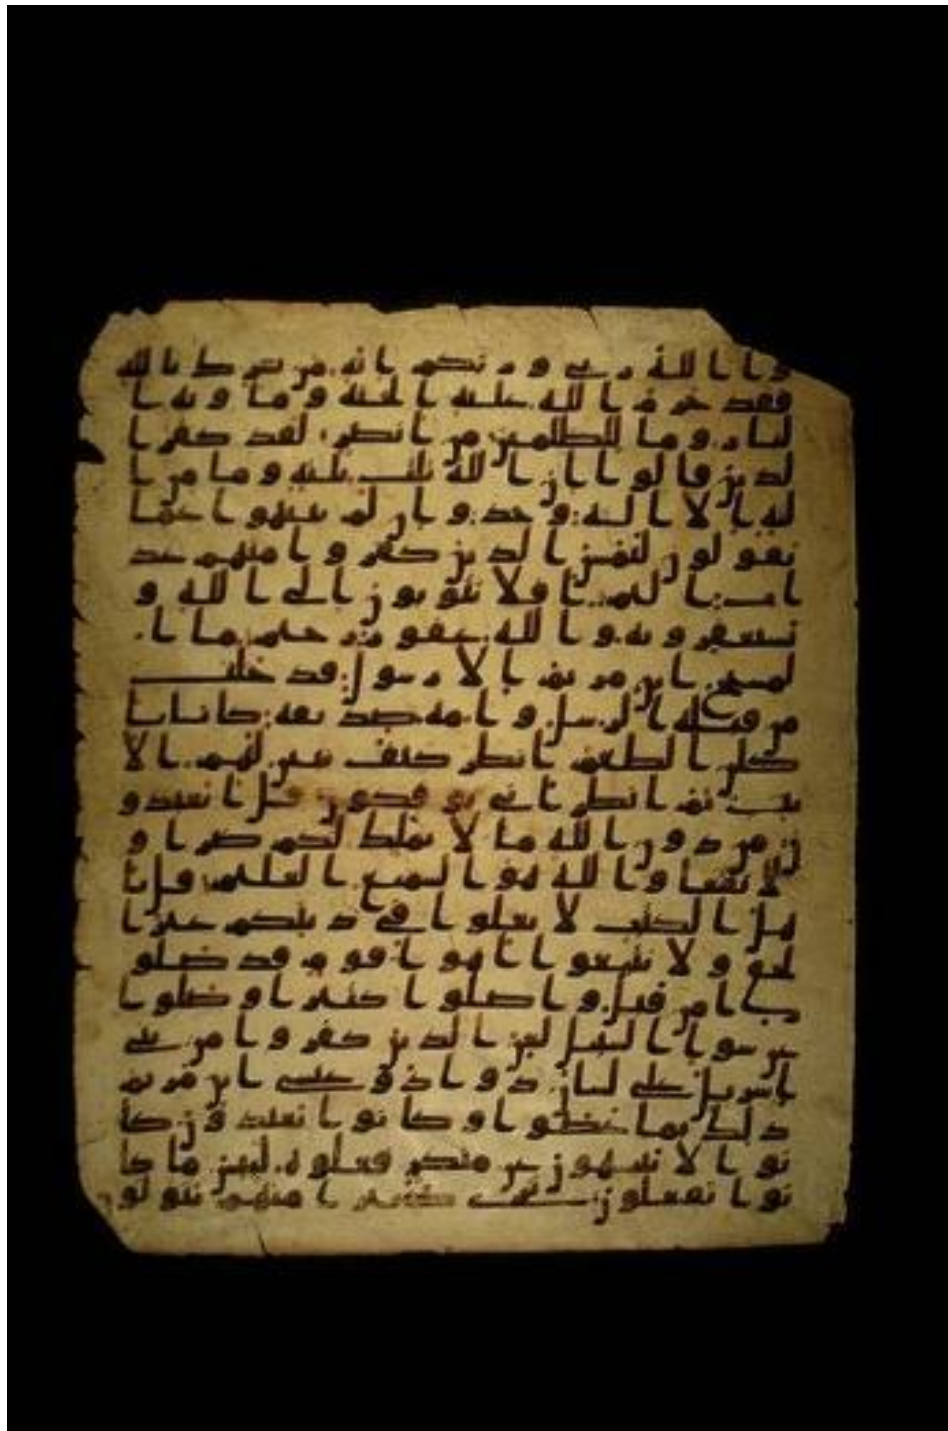 وا الله ربى وربكم انه من يشرك بالله
فقد حرم الله عليه الجنة وماويه ا
لنار وما للظلمين من انصر لقد كفر ا
لذين قالوا ان الله ثلث ثلثة وما من ا
له الا اله وحد وان لم ينتهوا عما
يقولون ليمسن الذين كفروا منهم عذ
اب اليم افلا يتوبون الى الله و
يستغفرونه والله غفور رحيم ما ا
لمسيح ابن مريم الا رسول قد خلت
من قبله الرسل وامه صديقة كانا يا
كلن الطعم انظر كيف نبين لهم الا
يت ثم انظر انى يوفكون قل اتعبدو
ن من دون الله ما لا يملك لكم ضرا و
لا نفعا والله هو السميع العليم قل يا
هل الكتب لا تغلوا في دينكم غير ا
لحق ولا تتبعوا اهوا قوم قد ضلو
ا من قبل واضلوا كثيرا وضلوا
عن سوا السبيل لعن الذين كفروا من بنى
اسريل على لسان دود وعيسى ابن مريم
ذلك بما عصوا وكانوا يعتدون كا
نوا لا يتنهون عن منكر فعلوه لبيس ما كا
نوا يفعلون كثيرا منهم يتولو